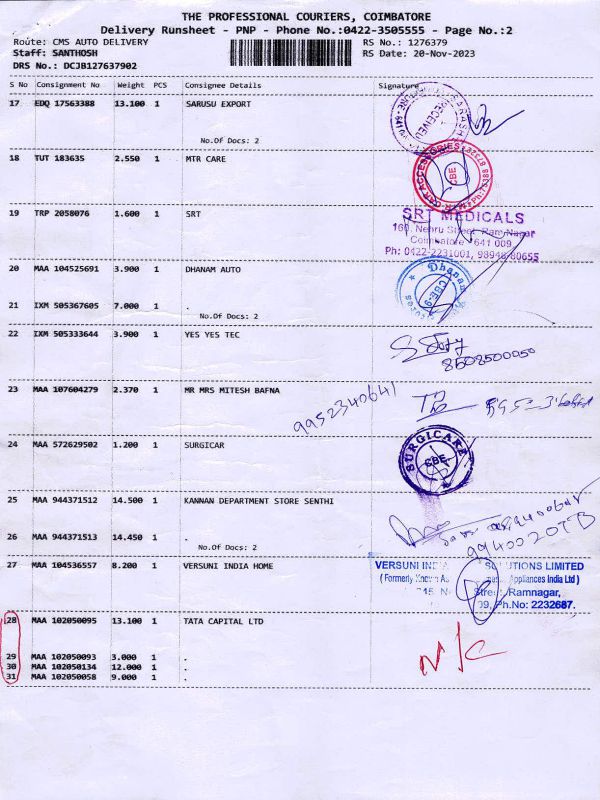 THE PROFESSIONAL COURIERS, COIMBATORE
Delivery Runsheet - PNP - Phone No.:0422-3505555 - Page No.:2
Route: CMS AUTO DELIVERY RS No.: 1276379
Staff: SANTHOSH RS Date: 20-Nov-2023
DRS No.: DCJB127637902
S No Consignment No Weight PCS Consignee Details Signature
17 EDQ 17563388 13.100 1 SARUSU EXPORT
RECEIVED
No.Of Docs: 2
18 TUT 183635 2.550 1 MTR CARE
CAR ACCESSORIES
CBE
19 TRP 2058076 1.600 1 SRT
SRT MEDICALS
160, Nehru Street, Ram Nagar
Coimbatore - 641 009
Ph: 0422-2231001, 98948 80655
20 MAA 104525691 3.900 1 DHANAM AUTO
Dhanam
CBE-9
21 IXM 505367605 7.000 1 .
No.Of Docs: 2
22 IXM 505333644 3.900 1 YES YES TEC
8508500050
23 MAA 107604279 2.370 1 MR MRS MITESH BAFNA
9952340641
24 MAA 572629502 1.200 1 SURGICAR
SURGICARE
CBE
25 MAA 944371512 14.500 1 KANNAN DEPARTMENT STORE SENTHI
26 MAA 944371513 14.450 1 .
No.Of Docs: 2
27 MAA 104536557 8.200 1 VERSUNI INDIA HOME
VERSUNI INDIA SOLUTIONS LIMITED
( Formerly Known Appliances India Ltd )
Street, Ramnagar,
09, Ph.No: 2232687.
28 MAA 102050095 13.100 1 TATA CAPITAL LTD
N/C
29 MAA 102050093 3.000 1 .
30 MAA 102050134 12.000 1 .
31 MAA 102050058 9.000 1 .